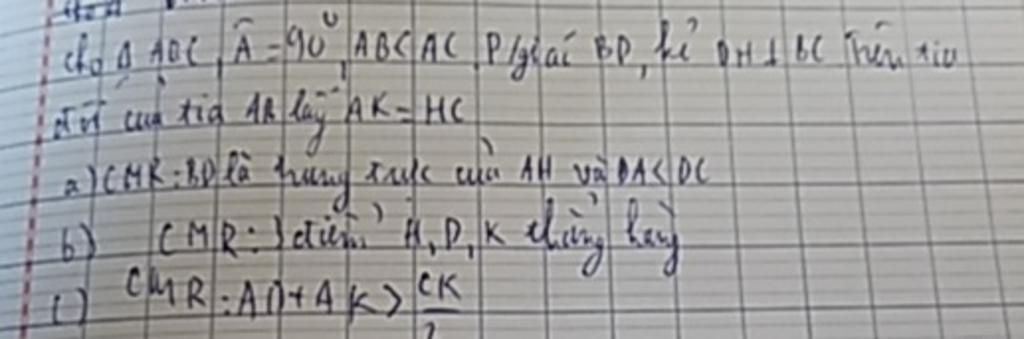 Cho Δ ABC, Â = 90°, AB<AC, P/giác BD, kẻ DH ⊥ BC Trên tia
đối của tia AB lấy AK = HC
a) CMR: BD là trung trực của AH và DA<DC
b) CMR: 3 điểm H, D, K thẳng hàng
c) CMR: AD + AK > CK/2